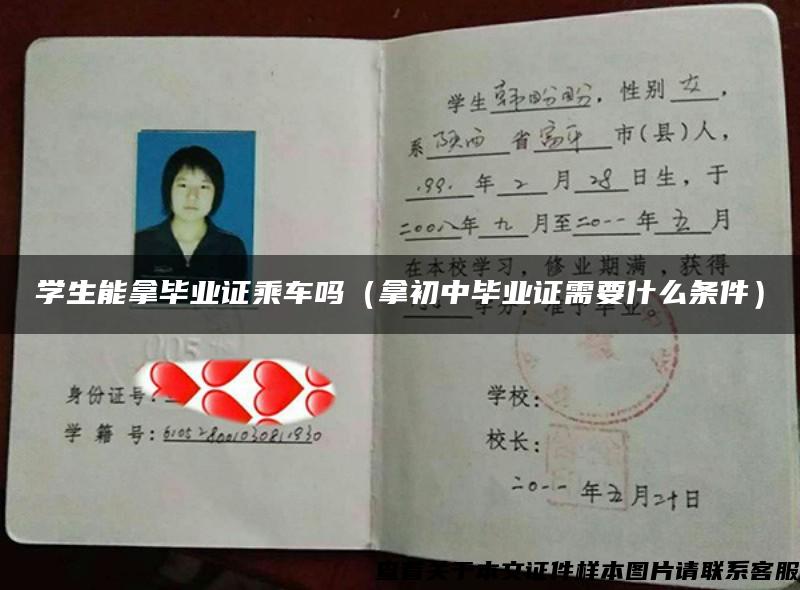 学生韩盼盼，性别女，
系陕西省富平市(县)人，
1991年2月28日生，于
二00八年九月至二0一一年五月
在本校学习，修业期满，获得
学生能拿毕业证乘车吗（拿初中毕业证需要什么条件）
学分，准予毕业。
005
身份证号：
学籍号：610528001030811930
学校：
校长：
二0一一年五月二十日
查看关于本文证件样本图片请联系客服